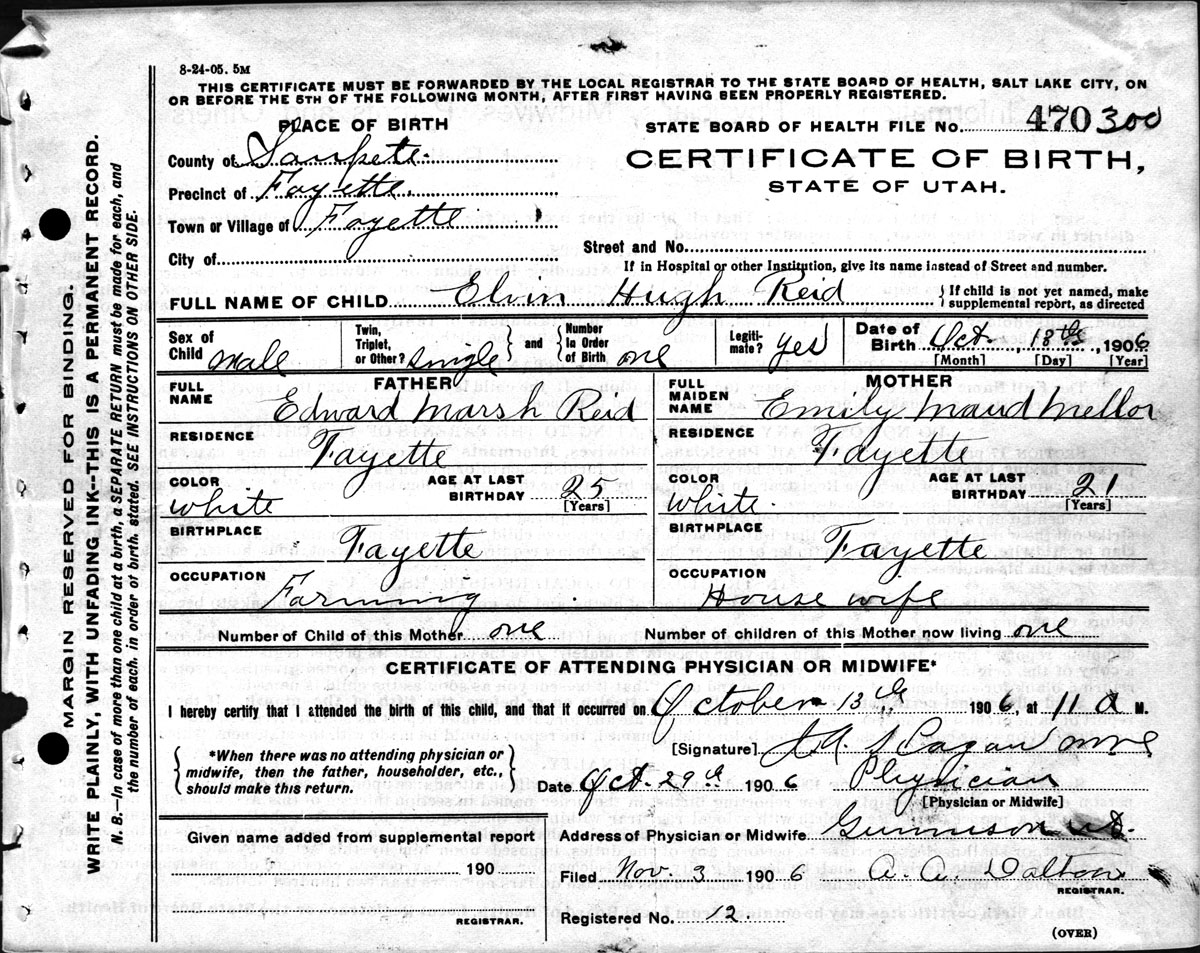 8-24-05. 5M
THIS CERTIFICATE MUST BE FORWARDED BY THE LOCAL REGISTRAR TO THE STATE BOARD OF HEALTH, SALT LAKE CITY, ON
OR BEFORE THE 5TH OF THE FOLLOWING MONTH, AFTER FIRST HAVING BEEN PROPERLY REGISTERED.
PLACE OF BIRTH
STATE BOARD OF HEALTH FILE NO. 470 300
County of Sanpete
CERTIFICATE OF BIRTH,
STATE OF UTAH.
Precinct of Fayette.
Town or Village of Fayette
City of
Street and No.
If in Hospital or other Institution, give its name instead of Street and number.
FULL NAME OF CHILD Elvin Hugh Reid { If child is not yet named, make
supplemental report, as directed
Sex of Child male Twin, Triplet, or Other? single } and { Number In Order of Birth one Legiti- mate? yes Date of Birth Oct. 18th, 1906
[Month] [Day] [Year]
FATHER
FULL NAME Edward Marsh Reid
RESIDENCE Fayette
COLOR white AGE AT LAST BIRTHDAY 25 [Years]
BIRTHPLACE Fayette
OCCUPATION Farming
MOTHER
FULL MAIDEN NAME Emily Maud Mellor
RESIDENCE Fayette
COLOR white. AGE AT LAST BIRTHDAY 21 [Years]
BIRTHPLACE Fayette
OCCUPATION House wife
Number of Child of this Mother one Number of children of this Mother now living one
CERTIFICATE OF ATTENDING PHYSICIAN OR MIDWIFE*
I hereby certify that I attended the birth of this child, and that it occurred on October 13th 1906, at 11 a M.
{ *When there was no attending physician or
midwife, then the father, householder, etc.,
should make this return. }
[Signature] Hagan
Date Oct. 29th 1906 Physician
[Physician or Midwife]
Given name added from supplemental report
190
REGISTRAR.
Address of Physician or Midwife Gunnison Ut.
Filed Nov. 3 1906 A. A. Dalton
REGISTRAR.
Registered No. 12.
(OVER)
MARGIN RESERVED FOR BINDING.
WRITE PLAINLY, WITH UNFADING INK--THIS IS A PERMANENT RECORD.
N. B.—In case of more than one child at a birth, a SEPARATE RETURN must be made for each, and
the number of each, in order of birth, stated. SEE INSTRUCTIONS ON OTHER SIDE.